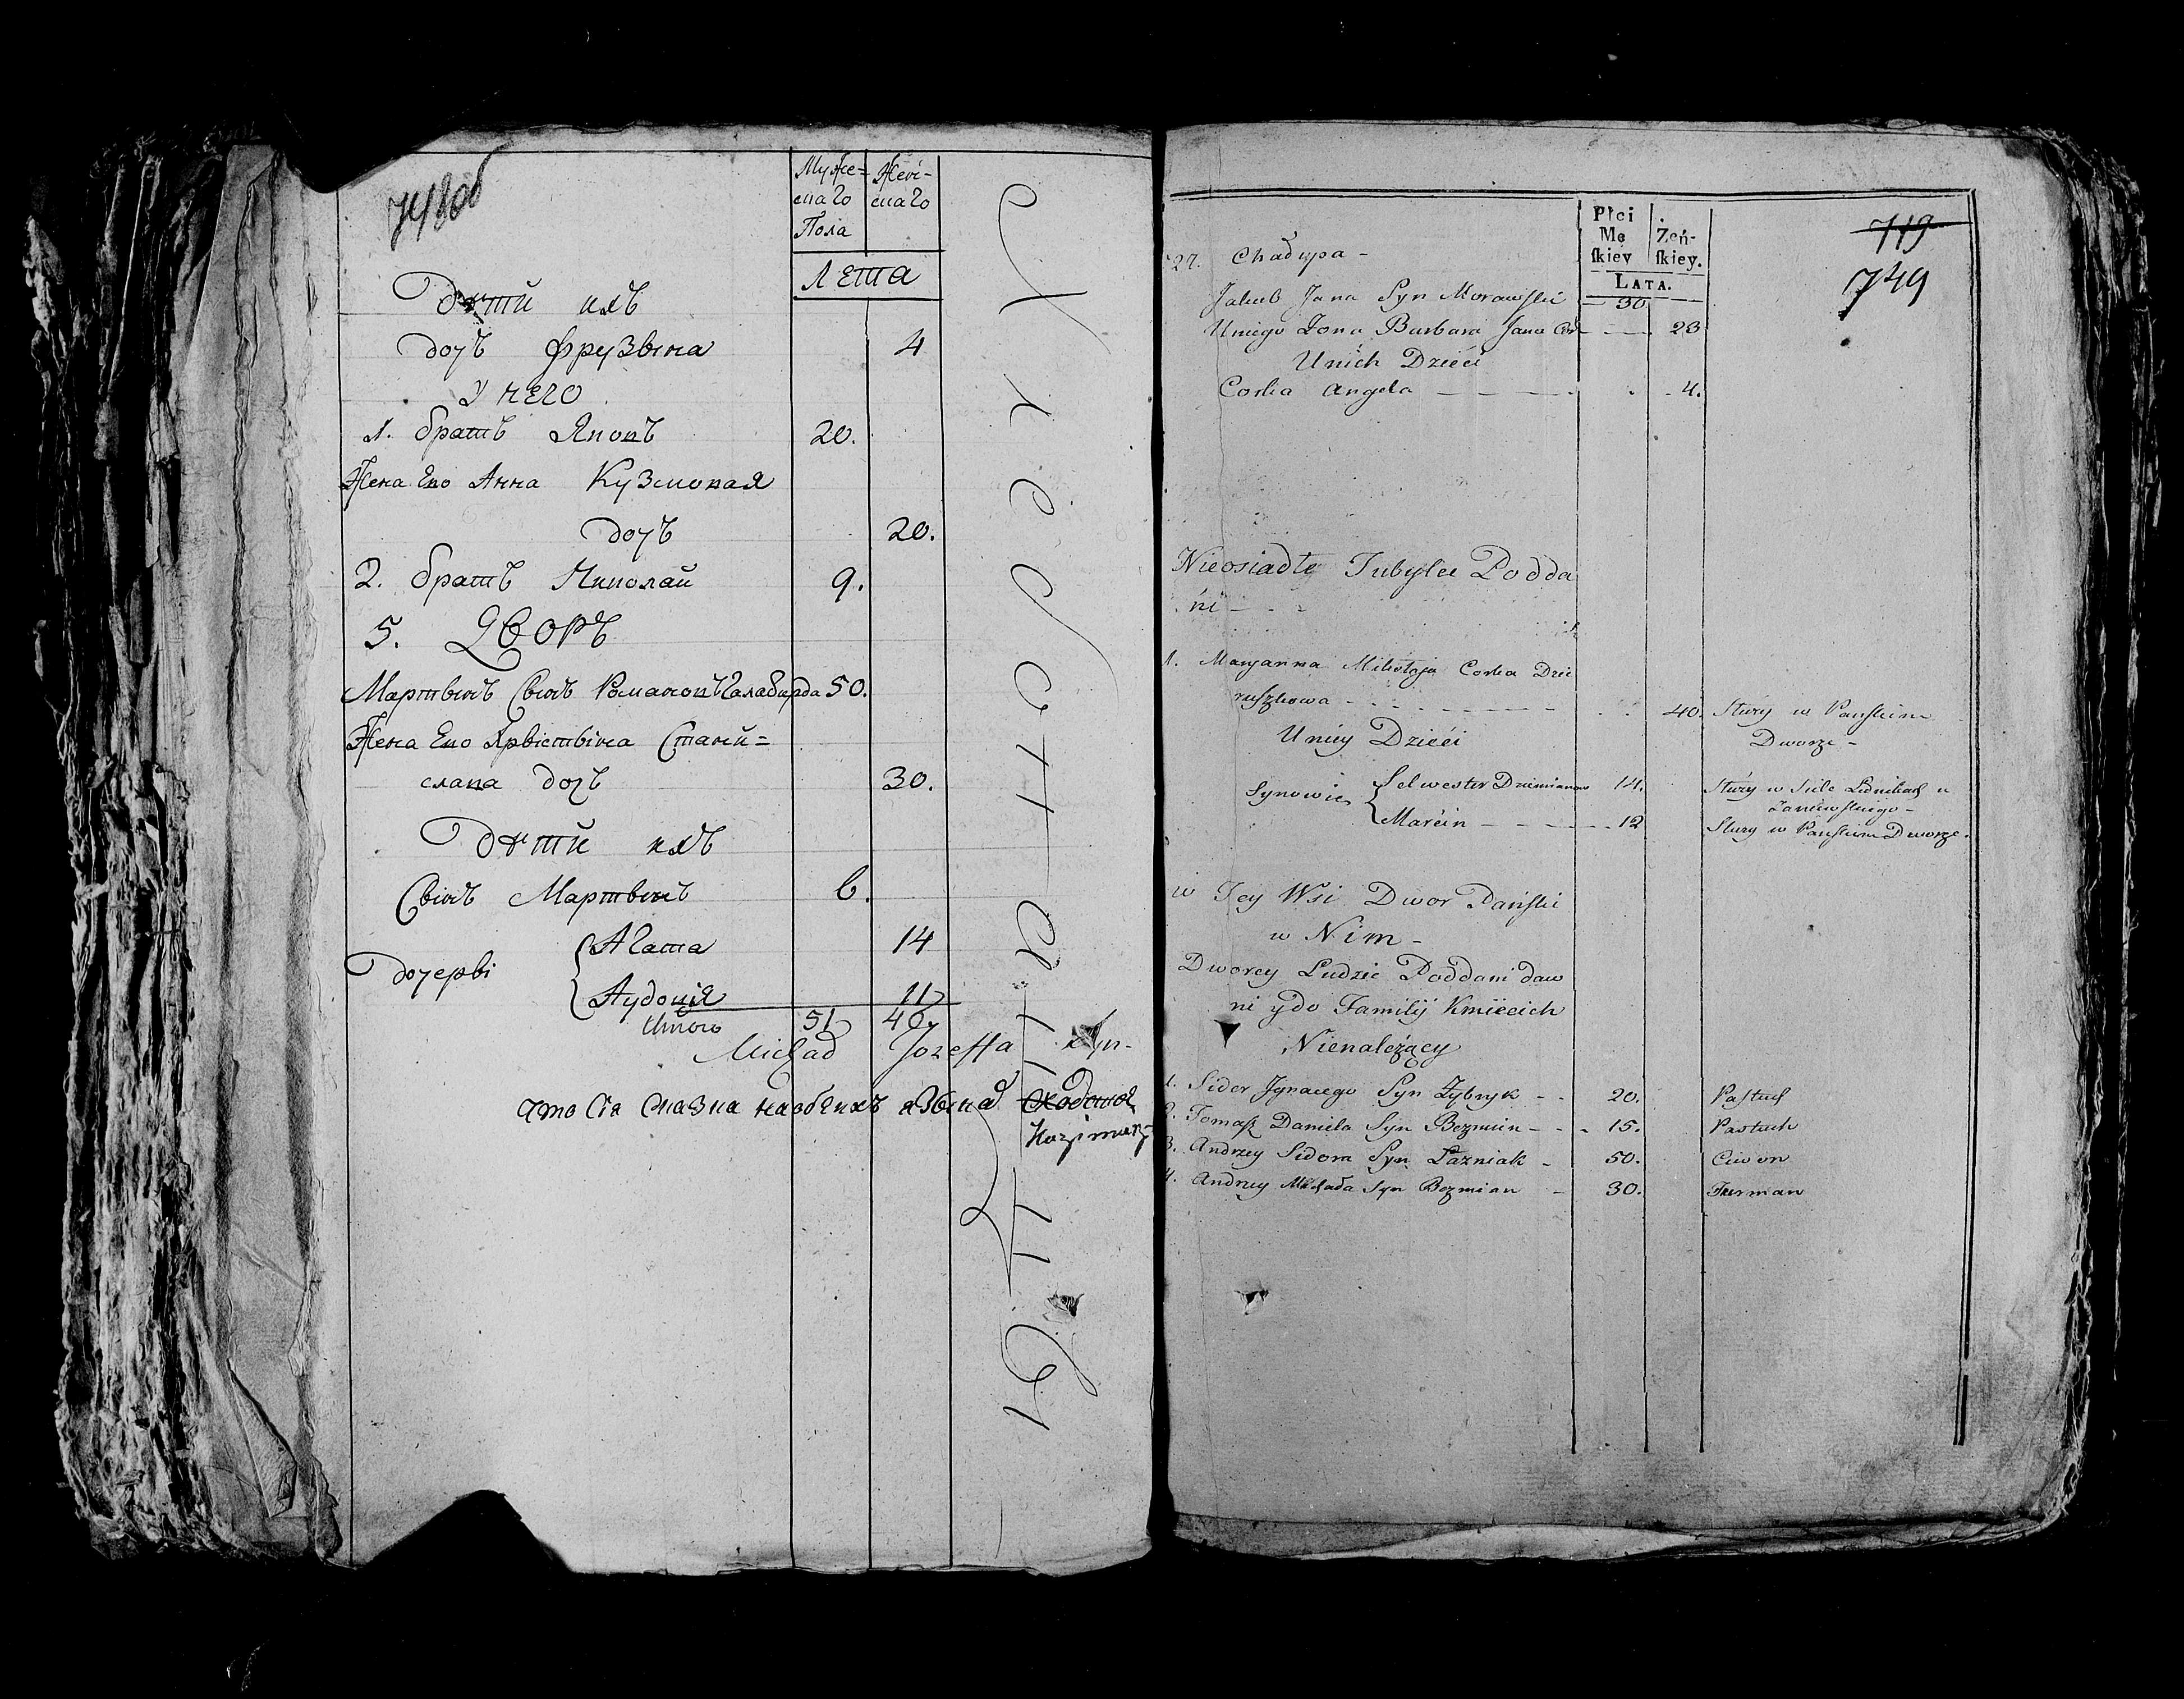 748об
Муже=
скаго
Пола
Женс-
скаго
Лета
Дѣти ихъ
дочъ Фрузына 4
У него
1. братъ Яковъ 20.
Жена Ево Анна Кузмовая
дочъ 20.
2. братъ Николай 9.
5. Дворъ
Мартынъ Сынъ Романовъ 50.
Жена Ево Стани=
слава дочъ 30.
Дѣти ихъ
Сынъ Мартынъ 6.
Дочеры
Агата 14
Аудоція 11
Итого 51 40
Michał Jozeffa Syn-
Что Сія Сказка
Kazimierz
719
749
Płci
Mę
ſkiey
Żeń-
ſkiey.
LATA.
27. Chałupa -
Jakub Jana Syn Morawſki 30
Uniego Zona Barbara Jana Cor 23
Unich Dzieći
Corka Angela 4.
Nieosiadłe Tubylce Podda
ńi
1. Maryanna Mikołaja Corka Dzie
ruſzkowa 40. Słuzy w Panſkim
Dworze -
Uniey Dzieći
Synowie Selwester Dziemianow 14. Słuzy w Siele
Marćin 12 Słuzy w Panſkim Dworze.
w Tey Wsi Dwor Pańſki
w Nim -
Dworcy Ludzie Poddani daw
ni ydo Familij Kmiecich
Nienależący
1. Sidor Jgnacego Syn Zybryk 20. Paſtuch
2. Tomaſz Daniela Syn Bezmien 15. Pastuch
3. Andrzey Sidora Syn Łazniak 50. Ciwon
4. Andrzey Michała Syn Bezmian 30. Furman